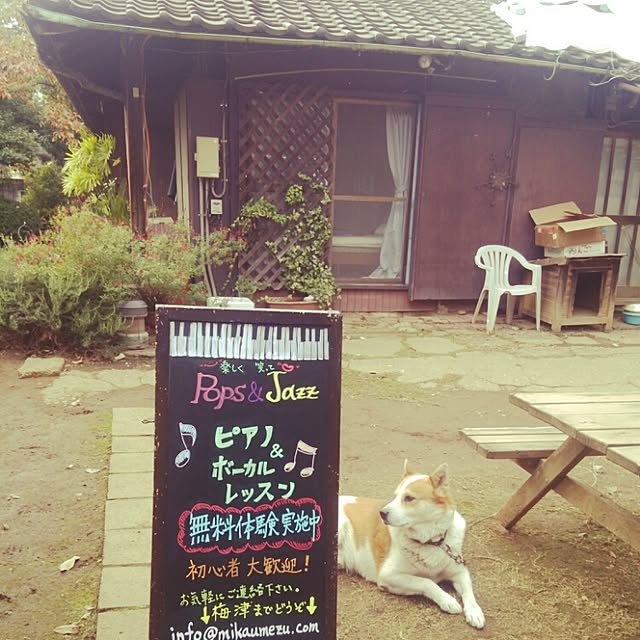 楽しく 笑って
Pops & Jazz
ピアノ
&
ボーカル
レッスン
無料体験実施中
初心者 大歓迎!
お気軽にご連絡下さい。
↓梅津までどうぞ↓
info@mikaumezu.com